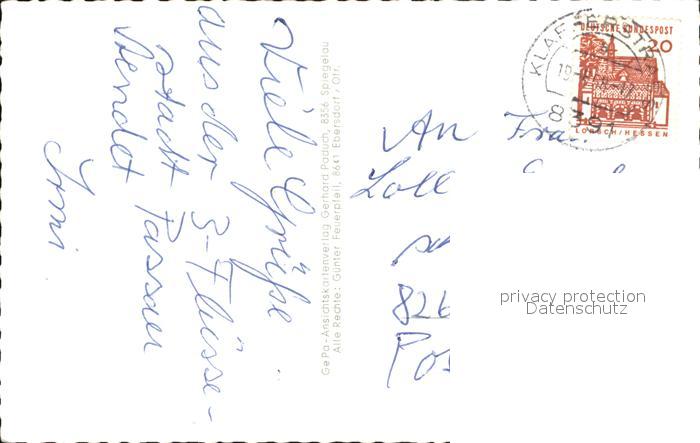 Viele Grüße
aus der 3-Flüsse-
stadt Passau
sendet
Irmi
GePa-Ansichtskartenverlag Gerhard Paduch, 8356 Spiegelau
Alle Rechte: Günter Feuerpfeil, 8641 Ebersdorf/Ofr.
DEUTSCHE BUNDESPOST
20
LORSCH/HESSEN
KLAFFERSTR
8391
An Frau
Loll
826
Pos
privacy protection
Datenschutz